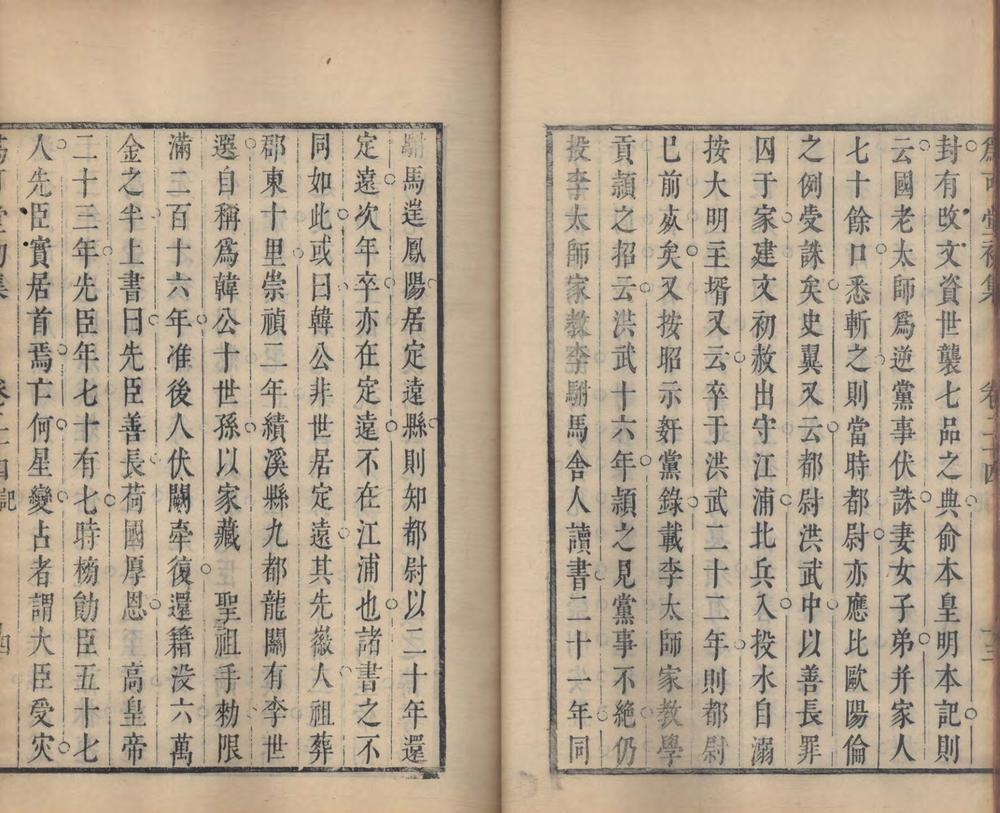 封有攺文資世襲七品之典俞本皇明本記則
云國老太師爲逆黨事伏誅妻女子弟并家人
七十餘口悉斬之則當時都尉亦應比歐陽倫
之例受誅矣史翼又云都尉洪武中以善長罪
囚于家建文初赦出守江浦北兵入投水自溺
按大明主壻又云卒于洪武二十二年則都尉
巳前歿矣又按昭示奸黨錄載李太師家教學
貢潁之招云洪武十六年潁之見黨事不絶仍
投李太師家教李駙馬舍人讀書二十一年同
駙馬逩鳳陽居定遠縣則知都尉以二十年還
定遠次年卒亦在定遠不在江浦也諸書之不
同如此或曰韓公非世居定遠其先徽人祖葬
郡東十里崇禎二年績溪縣九都龍關有李世
選自稱爲韓公十世孫以家藏 聖祖手勑限
滿二百十六年准後人伏闕牽復還籍没六萬
金之半上書曰先臣善長荷國厚恩至高皇帝
二十三年先臣年七十有七時楊勛臣五十七
人先臣實居首焉亡何星變占者謂大臣受灾
卷二十四記
四